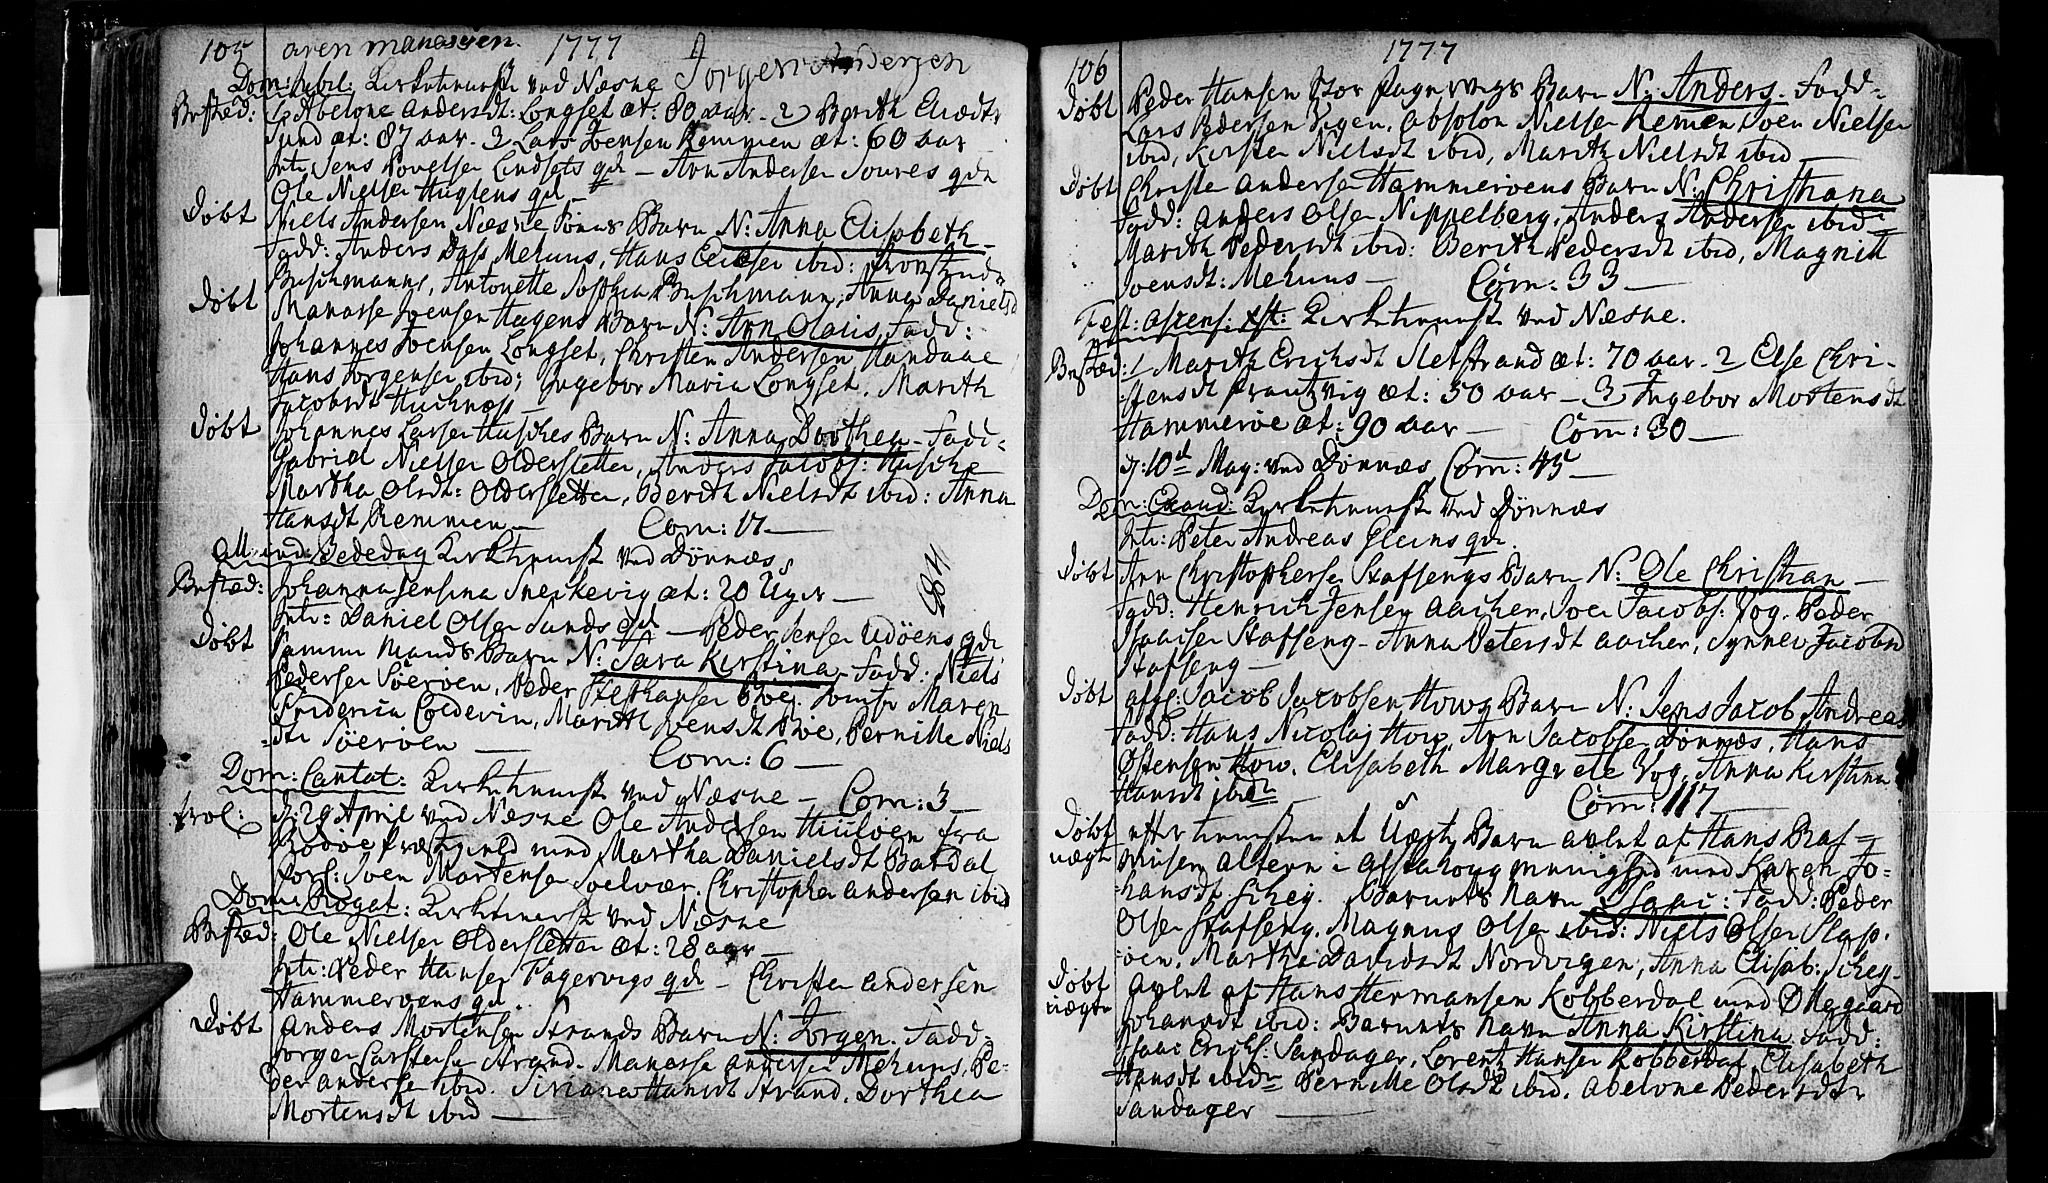 105 aren manassen. 1777 Jørgen Andersen
Dom: Jubil: Kirketieneste ved Næsne
Begrav: 1 Abelone Andersdt: Longset æt: 80 aar - 2 Berith
Sund æt: 87 aar - 3 Lars Joensen Remmen æt: 60 aar
Intr: Jens Povelsen Lindsets qde - Arn Andersen Soures qde
Ole Nielsen Hugtens qde -
Døbt Niels Andersen Næsne Barn N: Anna Elisabeth -
Fadd: Anders Dass Mehuus, Hans ibid:
Buschmanns, Antonette Sophia Buschmann, Anna Danielsd
Døbt Manasse Joensen Hagens Barn N: Arn Olais, Fadd:
Johannes Joensen Longset, Christen Andersen Handaae
Hans Jørgensen ibid; Ingebor Maria Longset, Marith
Jacobsdt
Døbt Johannes Larsen Husches Barn N: Anna Dorthea - Fadd:
Gabriel Nielsen Oldersletten, Anders Jacobs: Husche
Martha Olsdt: Oldersletten, Berith Nielsdt ibid: Anna
Hansdt Remmen - Com: 17 -
Alm: ind: Bededag Kirketienest ved Dønnæs
Johanna Jensina Sneckevig æt: 20 Uger -
Intr: Daniel Olsen Sunds qd - Peder Jensen Udøens qde
Døbt Samme Mands Barn N: Sara Kirstina - Fadd: Niels
Pedersen Søerøen, Peder Stephansen Boe, Jomfr Maren
Friderica Coldevin, Marith Joensdt Boe, Pernille Niels
dtr Søerøen - Com: 6 -
Dom: Cantat: Kirketienest ved Næsne - Com: 3 -
Trol: D: 29 April ved Næsne Ole Andersen fra
Rødøe Præstegield med Martha Danielsdt Batdal
Forl: Joen Mortensen Soelvær. Christopher Andersen ibid
Dom: Rogat: Kirketienest ved Næsne
Ole Nielsen Oldersletten æt: 28 aar -
Intr: Peder Hansen Fagervigs qde - Christen Andersen
Hammerøens qd.
Døbt Anders Mortensen Strands Barn N: Jørgen. Fadd:
Jørgen Larstensen Strand. Manasse Andersen Mehuus, Pe-
der Andersen ibid. Siriana Hansdt Strand, Dorthea
Mortensdt ibid -
106 1777
Døbt Peder Hansen Stor Fagervigs Barn N: Anders - Fadd:
Lars Pedersen Vigen, Absolon Nielsen Remen, Joen Nielsen
ibid, Kirsten Nielsdt ibid, Marith Nielsdt ibid -
Døbt Christen Andersen Hammerøens Barn N: Christiana
Fadd: Anders Olsen Nippelberg, Anders Andersen ibid
Marith Pedersdt ibid: Berith Pedersdt ibid, Magnill
Joensdt: Mehuus - Com: 33 -
Fest: Ascens: xsti: Kirketienest ved Næsne.
1 Marith Erichsdt Sletstrand æt: 70 aar - 2 Else Chri-
stensdt æt: 50 aar - 3 Ingebor Mostensdt
Hammerøe æt: 90 aar - Com: 30 -
D: 10de Maj: ved Dønnæs Com: 45 -
Dom: Exaud: Kirketienest ved Dønnæs
Intr: Peter Andreas Gleins qde.
Døbt Arn Christophersen Stafsengs Barn N: Ole Christian -
Fadd: Henrich Jensen Aacher, Joen Jacobs: Vog. Peder
Isaaisen Stafseng - Anna Petersdt Aacher, Synnev Jacobsd
Stafseng -
Døbt afgl: Jacob Jacobsen Hows Barn N: Jens Jacob Andreas
Fadd: Hans Nicolaj How, Arn Jacobsen Dønnæs, Hans
Østensen How, Elisabeth Margrete Vog, Anna Kirstina
Hansdt ibid Com: 117
Døbt uægte efter tienesten et Uægte Barn avlet af Hans Ras-
musen Altern i Alstahoug menighed med Karen Jo-
hansdt. Schey. Barnets Navn Isaac: Fadd: Peder
Olsen Stafseng, Magnus Olsen ibid: Niels Olsen Slap-
øen, Martha Davidsdt Nordvigen, Anna Elisab: Schey -
Døbt uægte Avlet af Hans Hermansen Kobberdal med Ollegaard
Johansdt ibid: Barnets Navn Anna Kirstina. Fadd:
Isaac Erichs: Sandager, Lorentz Hansen Kobberdal, Elisabeth
Hansdt ibid Pernille Olsdt ibid. Abelone Pedersdtr
Sandager -